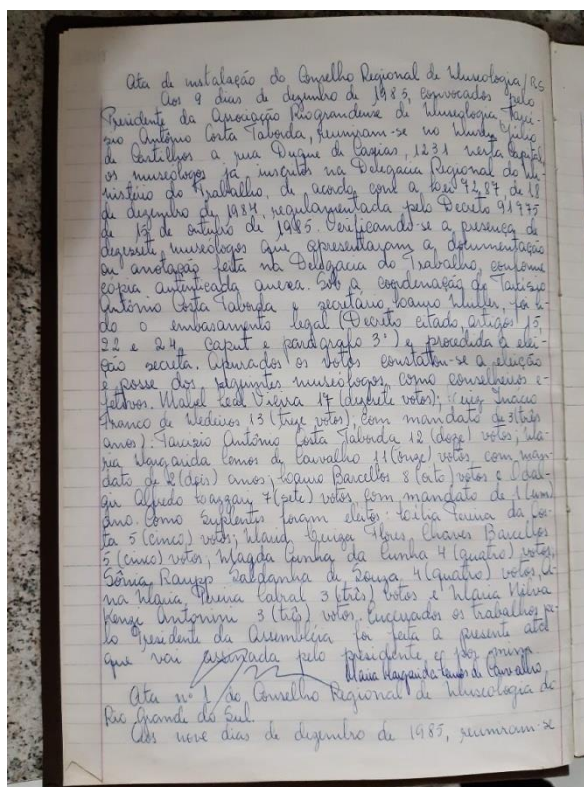 Ata de instalação do Conselho Regional de Museologia/RS
Aos 9 dias de dezembro de 1985, convocados pelo
Presidente da Associação Riograndense de Museologia, Tarci-
sio Antônio Costa Taborda, reuniram-se no Museu Júlio
de Castilhos a rua Duque de Caxias, 1231 nesta Capital,
os museólogos já inscritos na Delegacia Regional do Mi-
nistério do Trabalho, de acordo com a Lei 7287, de 18
de dezembro de 1984, regulamentada pelo Decreto 91775
de 15 de outubro de 1985. Verificando-se a presença de
dezessete museólogos que apresentaram a documentação
ou anotação feita na Delegacia do Trabalho, conforme
cópia autenticada anexa. Sob a coordenação de Tarcisio
Antônio Costa Taborda e secretário, foi li-
do o embasamento legal (Decreto citado, artigos 15,
22 e 24, caput e parágrafo 3º) e procedida a elei-
ção secreta. Apurados os votos constatou-se a eleição
e posse dos seguintes museólogos, como conselheiros e-
fetivos. Mabel Leal Vieira 17 (dezessete votos); Luiz Inácio
Franco de Medeiros 13 (treze votos); com mandato de 3 (três
anos). Tarcizio Antônio Costa Taborda 12 (doze) votos; Ma-
ria Margarida Lemos de Carvalho 11 (onze) votos, com man-
dato de 2 (dois) anos; Barcellos 8 (oito) votos e
Alfredo 7 (sete) votos, com mandato de 1 (um)
ano. Como Suplentes foram eleitos: da Cos-
ta 5 (cinco) votos; Maria Flores Chaves Barcellos
5 (cinco) votos; Magda Cunha da Cunha 4 (quatro) votos,
Sônia Saldanha de Souza, 4 (quatro) votos,
na Maria Pereira Cabral 3 (três) votos e Maria Nilva
Antonini 3 (três) votos. Encerrados os trabalhos pe-
lo Presidente da Assembléia foi feita a presente ata
que vai assinada pelo presidente e por mim.
Maria Margarida Lemos de Carvalho
Ata nº 1 do Conselho Regional de Museologia do
Rio Grande do Sul.
Aos nove dias de dezembro de 1985, reuniram-se